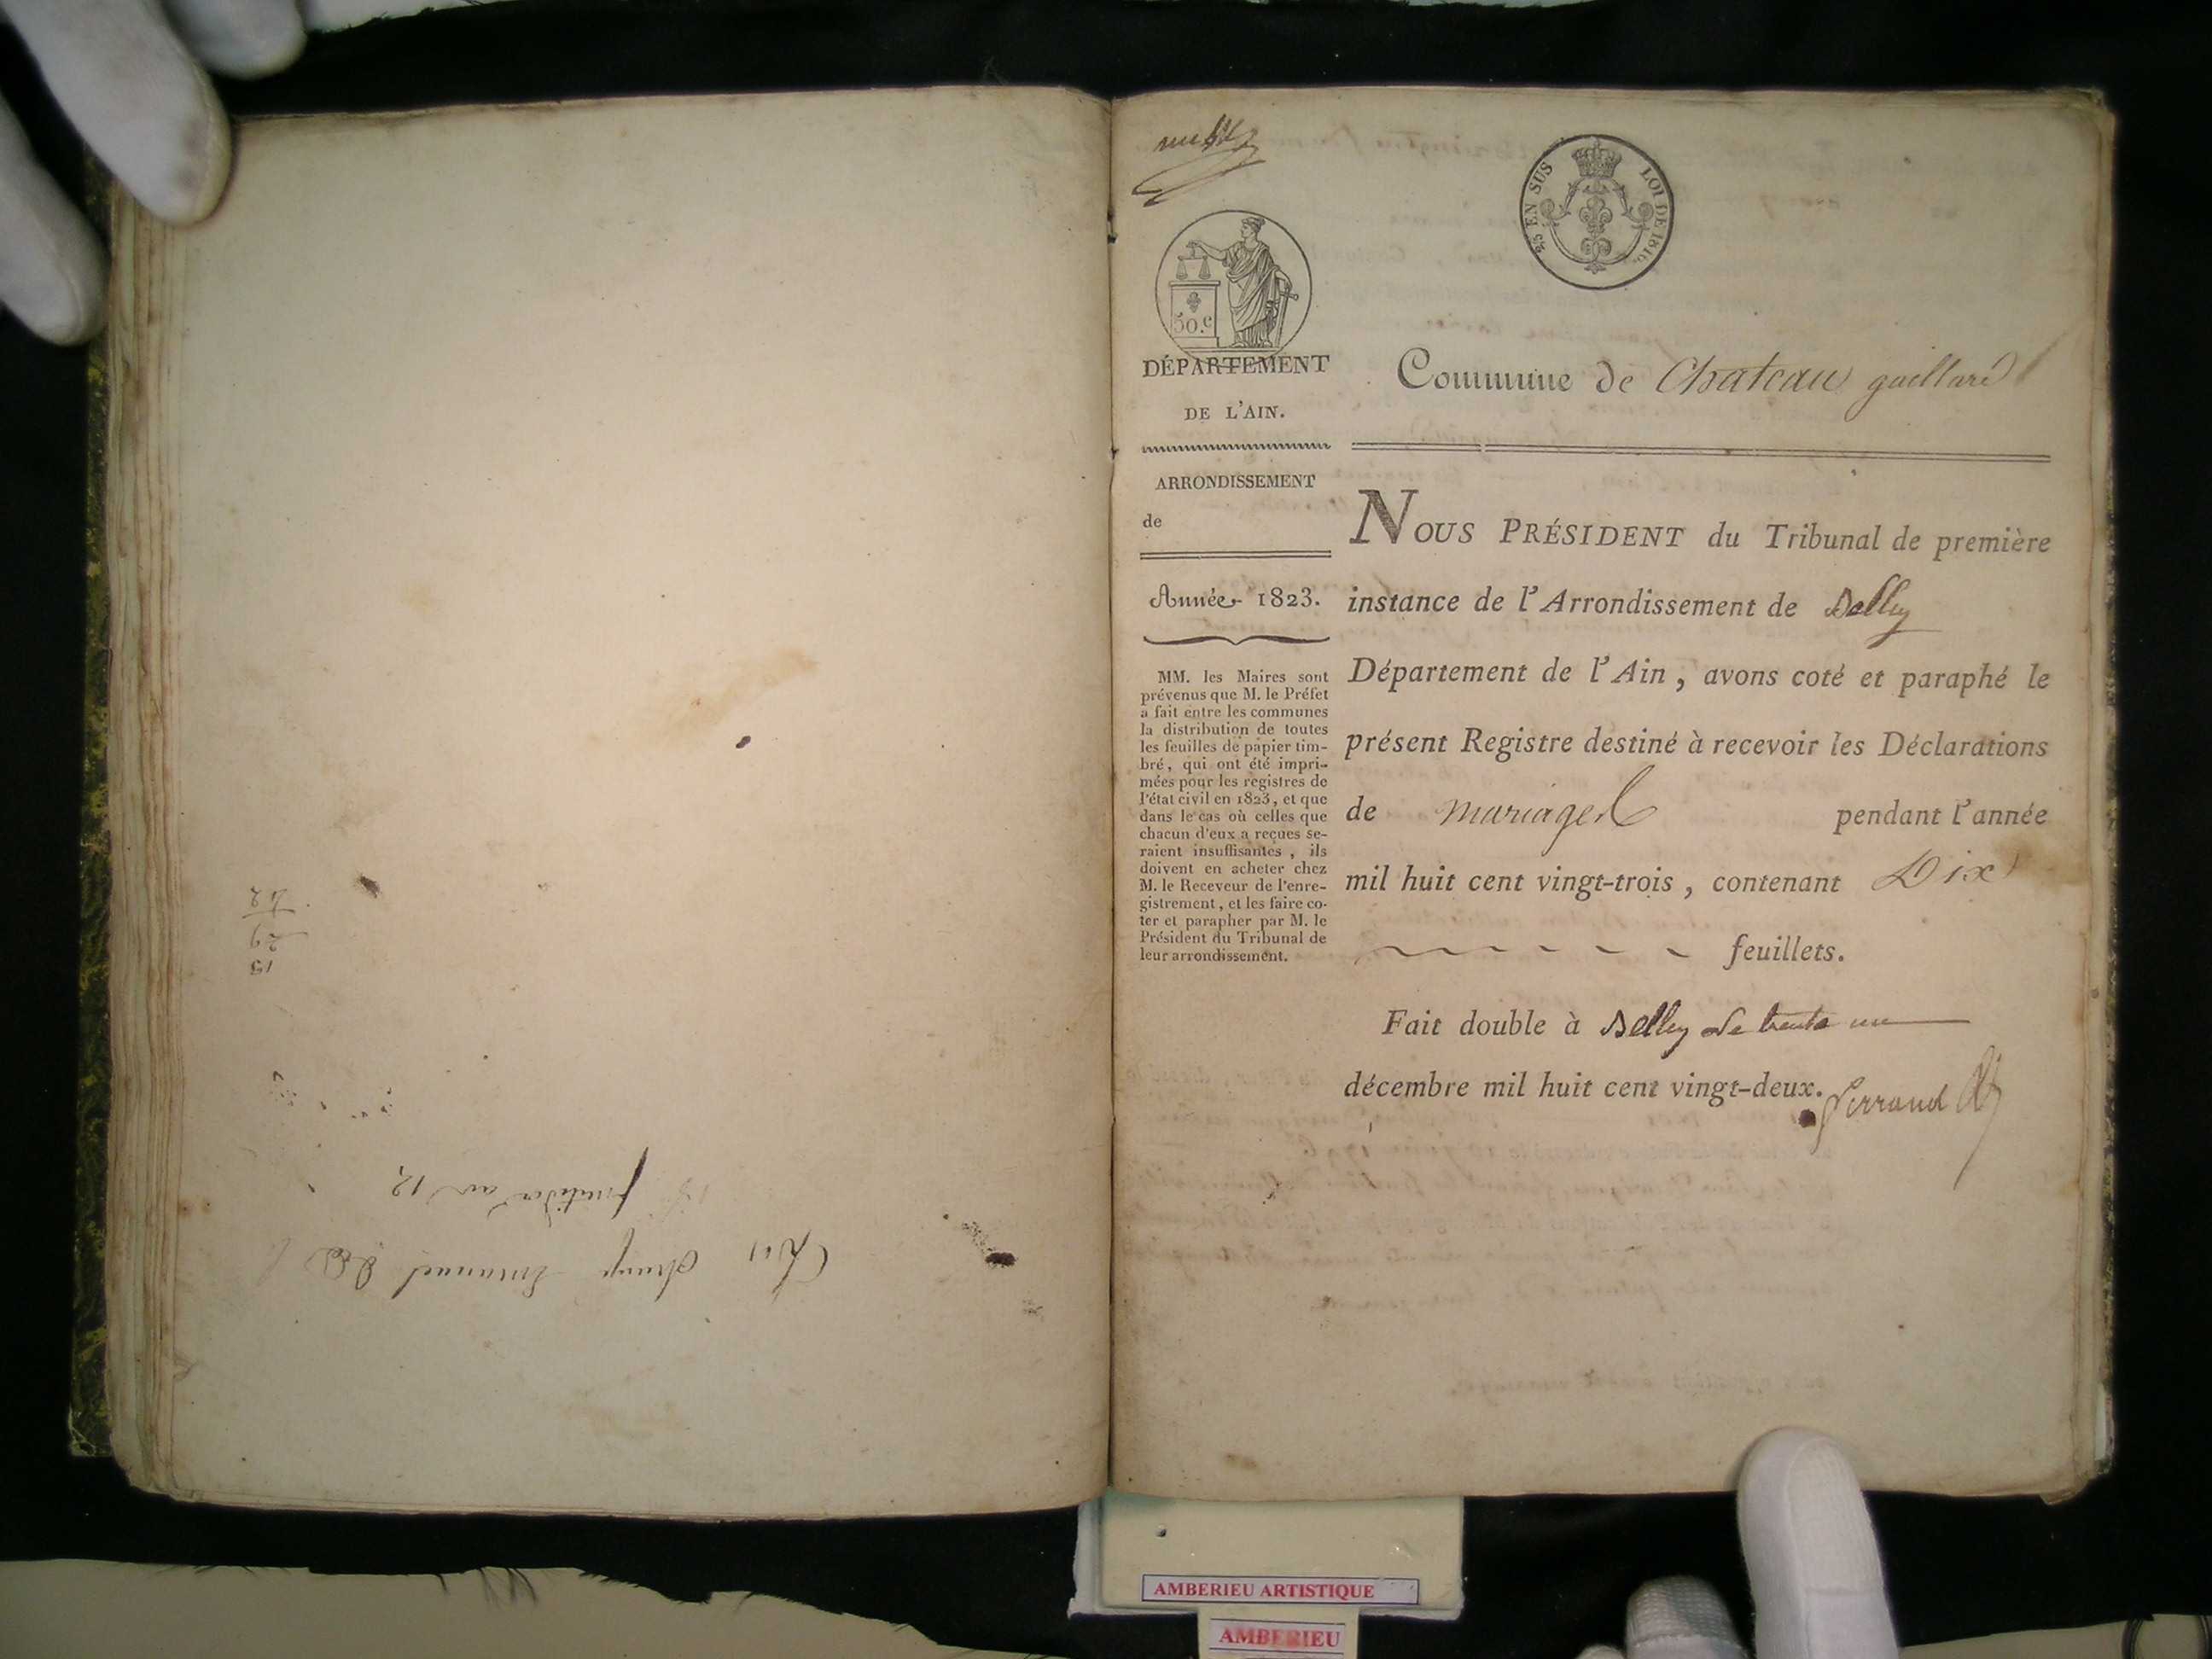 fructidor an 12
15
29
42
25 EN SUS LOI DE 1816.
50.c
DÉPARTEMENT
DE L'AIN.
ARRONDISSEMENT
de
Année 1823.
MM. les Maires sont
prévenus que M. le Préfet
a fait entre les communes
la distribution de toutes
les feuilles de papier tim-
bré, qui ont été impri-
mées pour les registres de
l'état civil en 1823, et que
dans le cas où celles que
chacun d'eux a reçues se-
raient insuffisantes, ils
doivent en acheter chez
M. le Receveur de l'enre-
gistrement, et les faire co-
ter et parapher par M. le
Président du Tribunal de
leur arrondissement.
Commune de Chateau gaillard
NOUS PRÉSIDENT du Tribunal de première
instance de l'Arrondissement de Belley
Département de l'Ain, avons coté et paraphé le
présent Registre destiné à recevoir les Déclarations
de mariages pendant l'année
mil huit cent vingt-trois, contenant Dix
feuillets.
Fait double à Belley le trente un
décembre mil huit cent vingt-deux.
AMBERIEU ARTISTIQUE
AMBERIEU